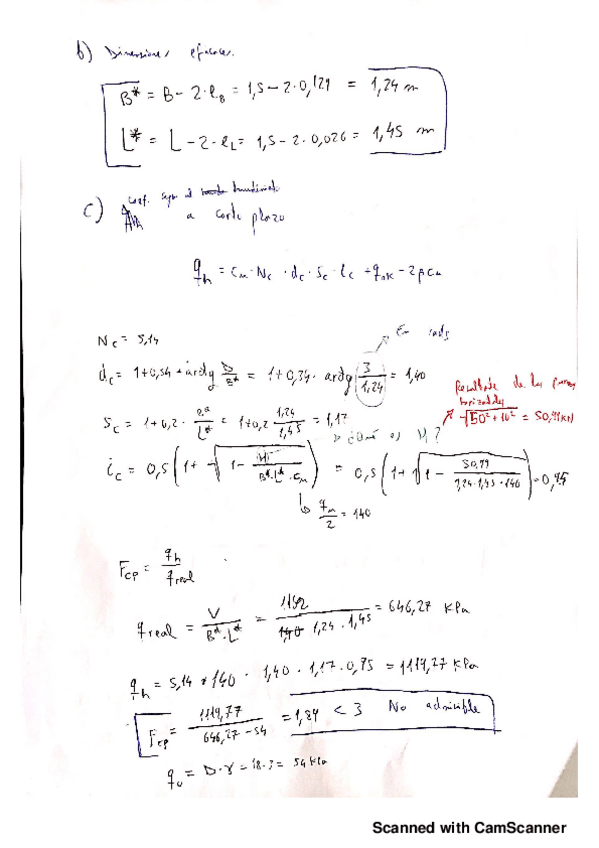 b) Dimensiones eficaces.
B* = B - 2·e_B = 1,5 - 2·0,129 = 1,24 m
L* = L - 2·e_L = 1,5 - 2·0,026 = 1,45 m
c) coef. segu al hundimiento
a corto plazo
q_h = c_u · N_c · d_c · s_c · i_c + q_ok
N_c = 5,14
En rads
d_c = 1+0,34 · arctg D/B* = 1+0,34 · arctg 3/1,24 = 1,40
Resultado de las fuerzas
horizontales
√50²+10² = 50,99 kN
s_c = 1+0,2 · B*/L* = 1+0,2 1,24/1,45 = 1,17
¿Qué es H?
i_c = 0,5 (1 + √1 - H/B*·L*·c_u) = 0,5 (1+√1 - 50,99/1,24·1,45·140) = 0,95
q_u/2 = 140
F_cp = q_h/q_real
q_real = V/B*·L* = 1162/1,24 · 1,45 = 646,27 kPa
q_h = 5,14 * 140 · 1,40 · 1,17 · 0,95 = 1119,77 kPa
F_cp = 1119,77/646,27 - 54 = 1,89 < 3 No admisible
q_o = D·γ = 18·3 = 54 kPa
Scanned with CamScanner